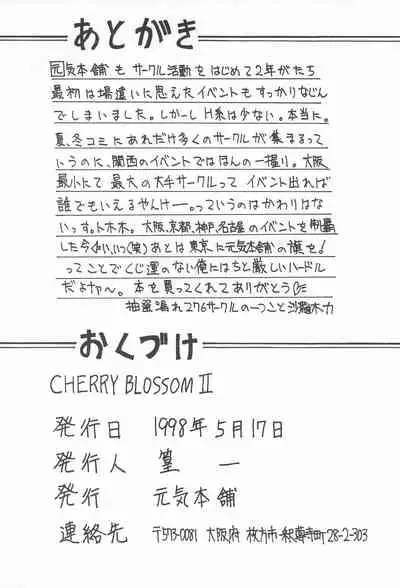 あとがき
元気本舗も サークル活動をはじめて2年がたち
最初は場違いに思えたイベントもすっかりなじん
でしまいました。しかーしH系は少ない。本当に。
夏、冬コミにあれだけ多くのサークルが集まるって
いうのに、関西のイベントではほんの一握り。大阪
最小にて 最大の大手サークルって イベント出れば
誰でもいえるやんけー。っていうのはかわりはな
いっす。トホホ。大阪、京都、神戸、名古屋のイベントを制覇
した今 (笑) あとは東京に元気本舗の旗を!
ってことでくじ運のない俺にはちと厳しいハードル
だよナァ〜。本を買ってくれてありがとう
抽選漏れ276サークルの一つこと 沙羅木力
おくづけ
CHERRY BLOSSOM II
発行日 1998年5月17日
発行人 篁 一
発行 元気本舗
連絡先 〒573-0081 大阪府 枚方市釈尊寺町28-2-303